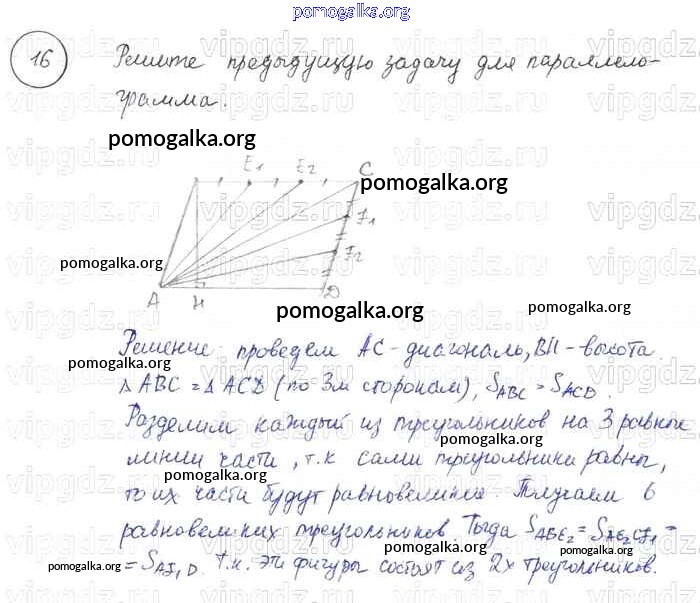 pomogalka.org
16 Решите предыдущую задачу для параллело-
грамма.
pomogalka.org
E1 E2 C
pomogalka.org
F1
F2
pomogalka.org
A H D
pomogalka.org
pomogalka.org
Решение: проведем AC - диагональ, BH - высота.
pomogalka.org
Δ ABC = Δ ACD (по 3м сторонам), SABC = SACD.
pomogalka.org
Разделим каждый из треугольников на 3 равные
pomogalka.org
линии части, т.к сами треугольники равны,
pomogalka.org
то их части будут равновелики. Получаем 6
pomogalka.org
равновеликих треугольников. Тогда SABE2 = SAE2CF1 =
pomogalka.org
= SAF1D. т.к. эти фигуры состоят из 2х треугольников.
pomogalka.org